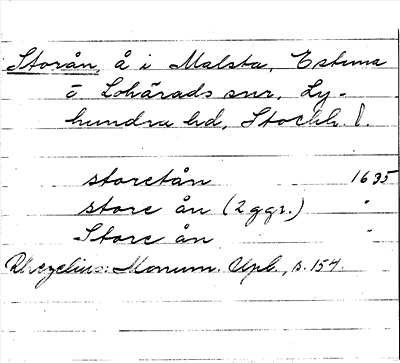 Storån, å i Malsta, Estuna
o Lohärads snr, Ly-
hundra hd, Stockh l.
storetån 1635
store ån (2 ggr.) "
Store ån "
Rhezelius: Monum. Upl., s. 154.